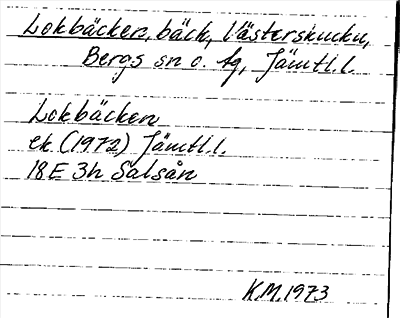 Lokbäcken, bäck, Västerskucku,
Bergs sn o. tg, Jämtl.l.
Lokbäcken
ek (1972) Jämtl.l.
18E 3h Salsån
K.M. 1973